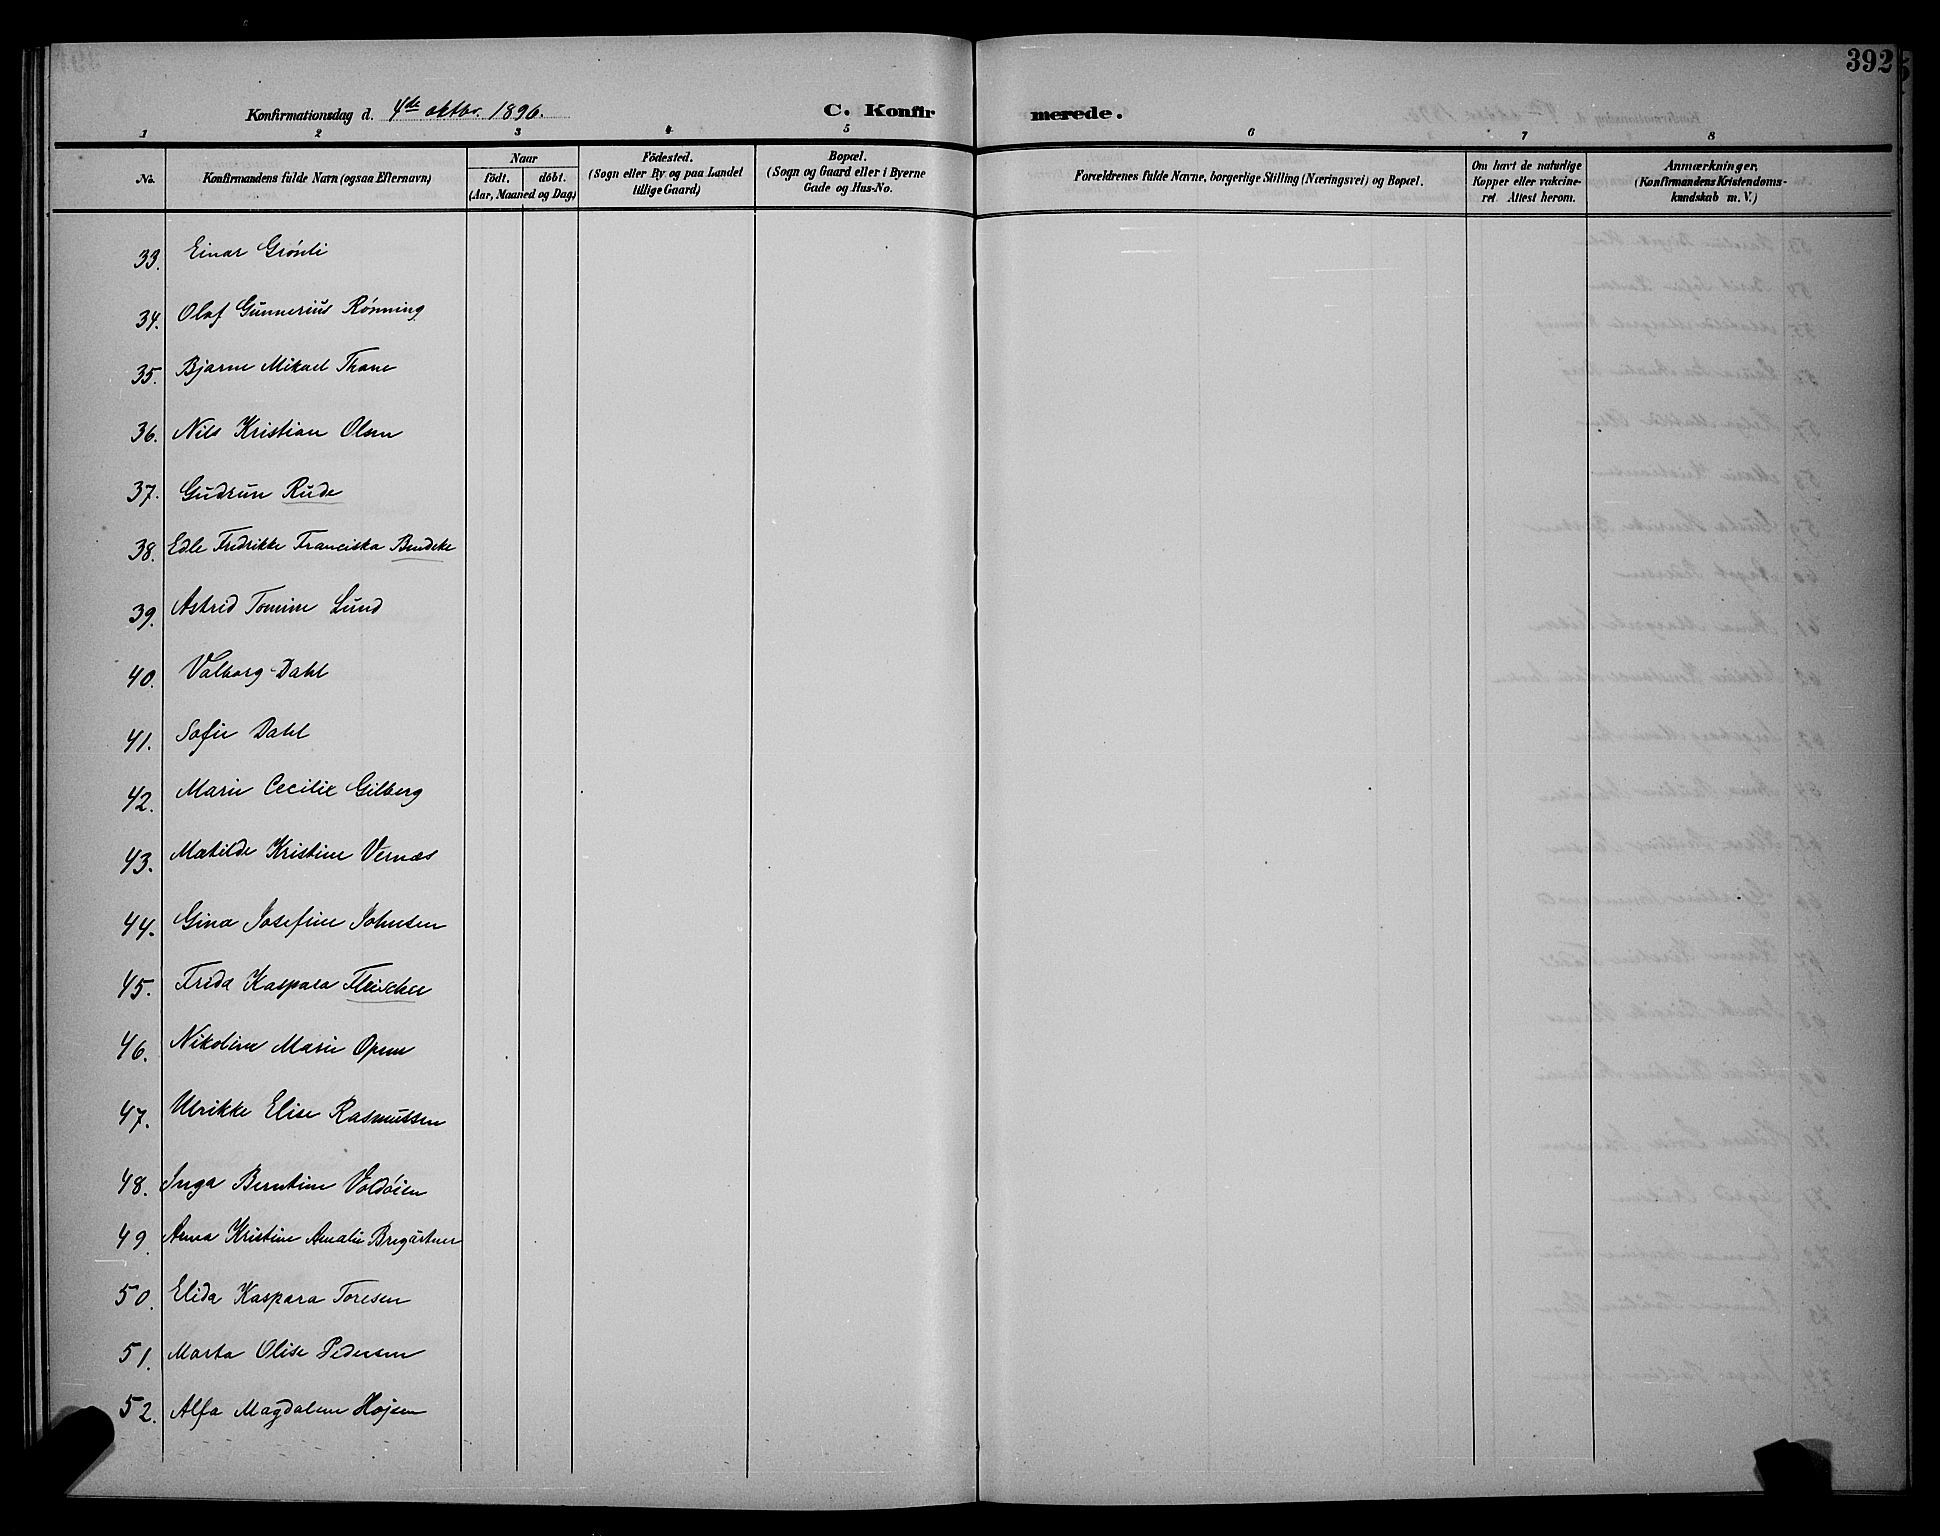 392
Konfirmationsdag d. 4de oktbr. 1896.
C. Konfirmerede.
1 2 3 4 5 6 7 8
No.
Konfirmandens fulde Navn (ogsaa Efternavn)
Naar
födt. döbt.
(Aar, Maaned og Dag)
Födested.
(Sogn eller By og paa Landet
tillige Gaard)
Bopæl.
(Sogn og Gaard eller i Byerne
Gade og Hus-No.
Forældrenes fulde Navne, borgerlige Stilling (Næringsvei) og Bopæl.
Om havt de naturlige
Kopper eller vakcine-
ret. Attest herom.
Anmærkninger,
(Konfirmandens Kristendoms-
kundskab m. V.)
33. Einar Grönli
34. Olaf Gunnerius Rönning
35. Bjarne Mikael Thane
36. Nils Kristian Olsen
37. Gudrun Rude
38. Edle Fredrikke Franciska Bendeke
39. Astrid Tomine Lund
40. Valborg Dahl
41. Sofie Dahl
42. Marie Cecilie Gilberg
43. Matilde Kristine Vernæs
44. Gina Josefine Johnsen
45. Frida Kaspara Fleischer
46. Nikoline Marie Opem
47. Ulrikke Elise Rasmussen
48. Inga Berntine Voldöien
49. Anna Kristine Amalie Bregärtner
50. Elida Kaspara Toresen
51. Marta Olise Pedersen
52. Alfa Magdalene Hojsen